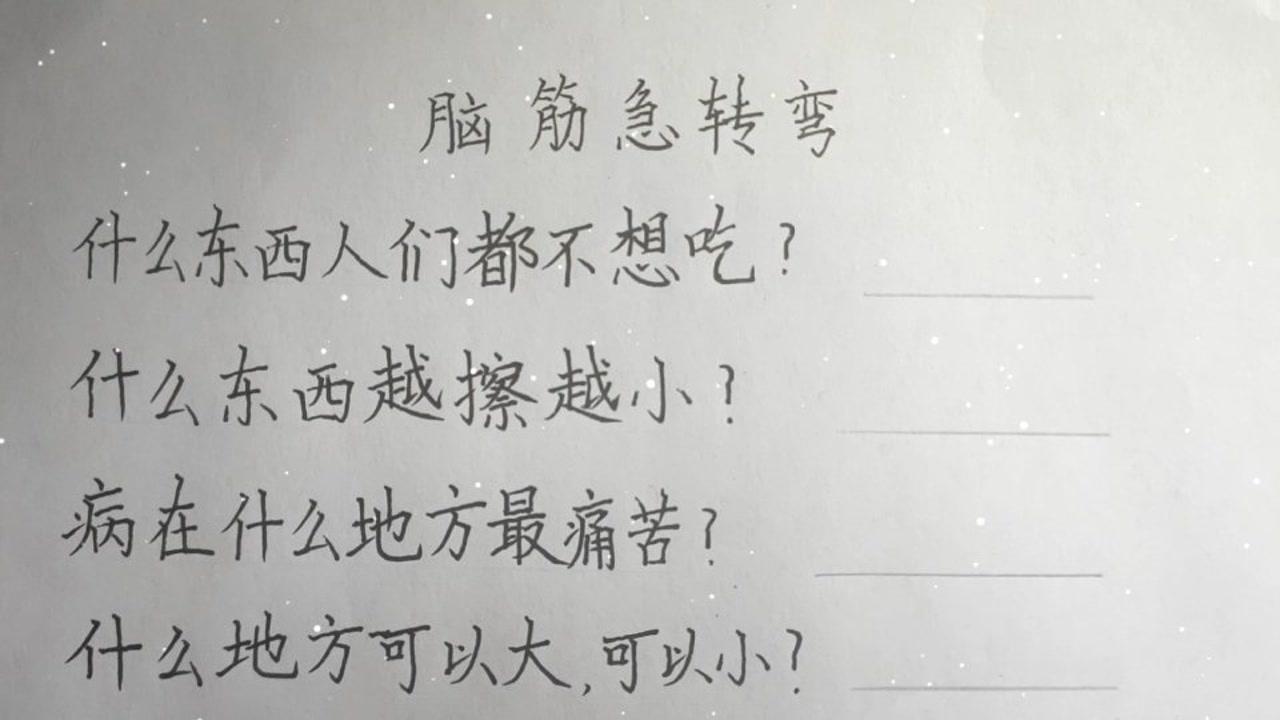 脑筋急转弯
什么东西人们都不想吃?
什么东西越擦越小?
病在什么地方最痛苦?
什么地方可以大,可以小?